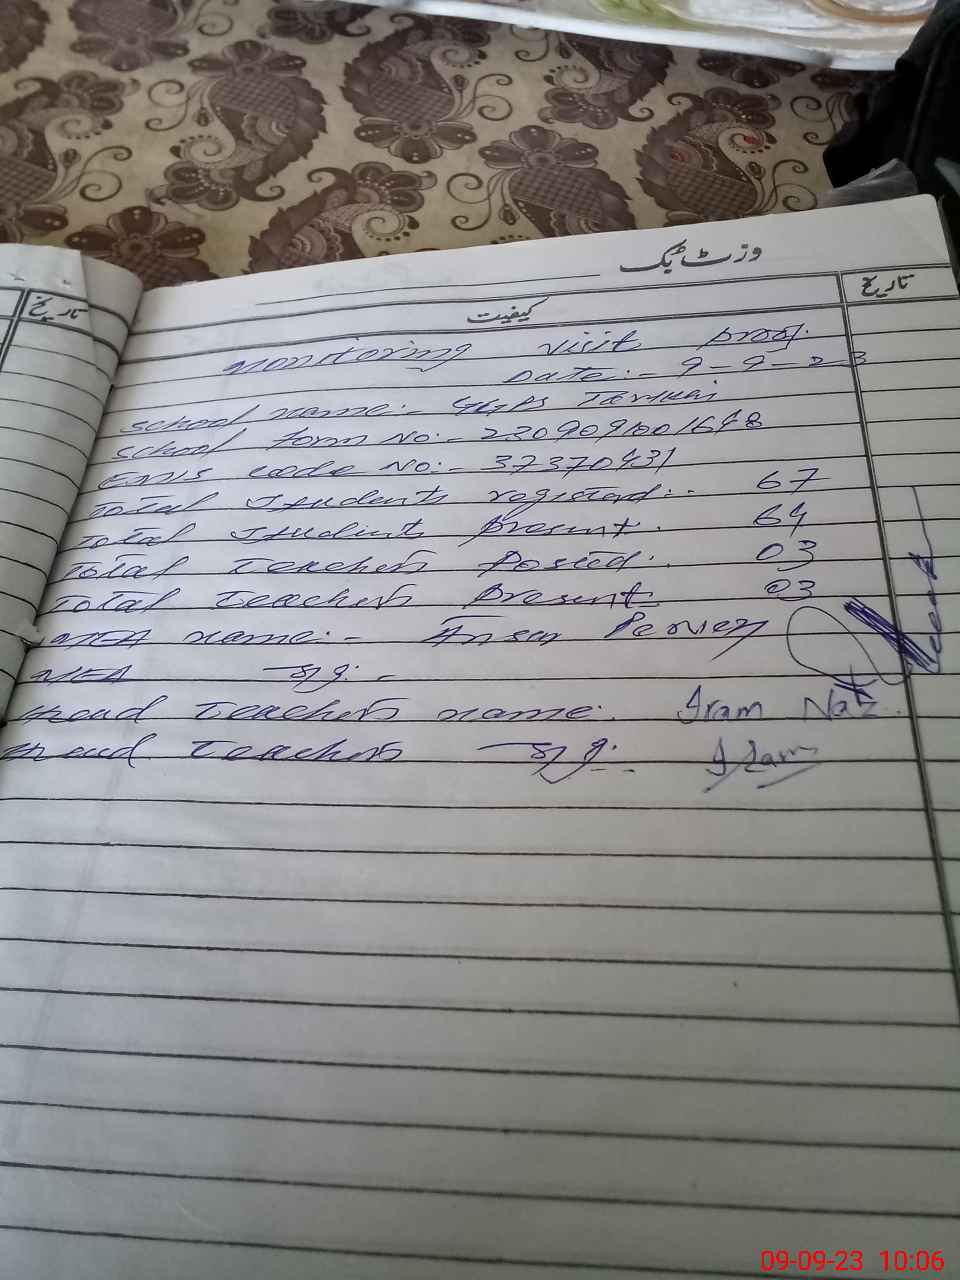 وزٹ بک
تاریخ
کیفیت
تاریخ
Monitoring visit proof.
Date:- 9-9-23
School name:- GGPS
School form No:- 2309091001648
EMIS code No:- 37370431
Total Students registerd:- 67
Total Students Present. 64
Total Teachers Posted. 03
Total Teachers Present 03
MEA name:- Ansar Pervez
MEA sig:-
Head Teachers name. Iram Naz.
Head Teachers sig:. Iram
09-09-23 10:06